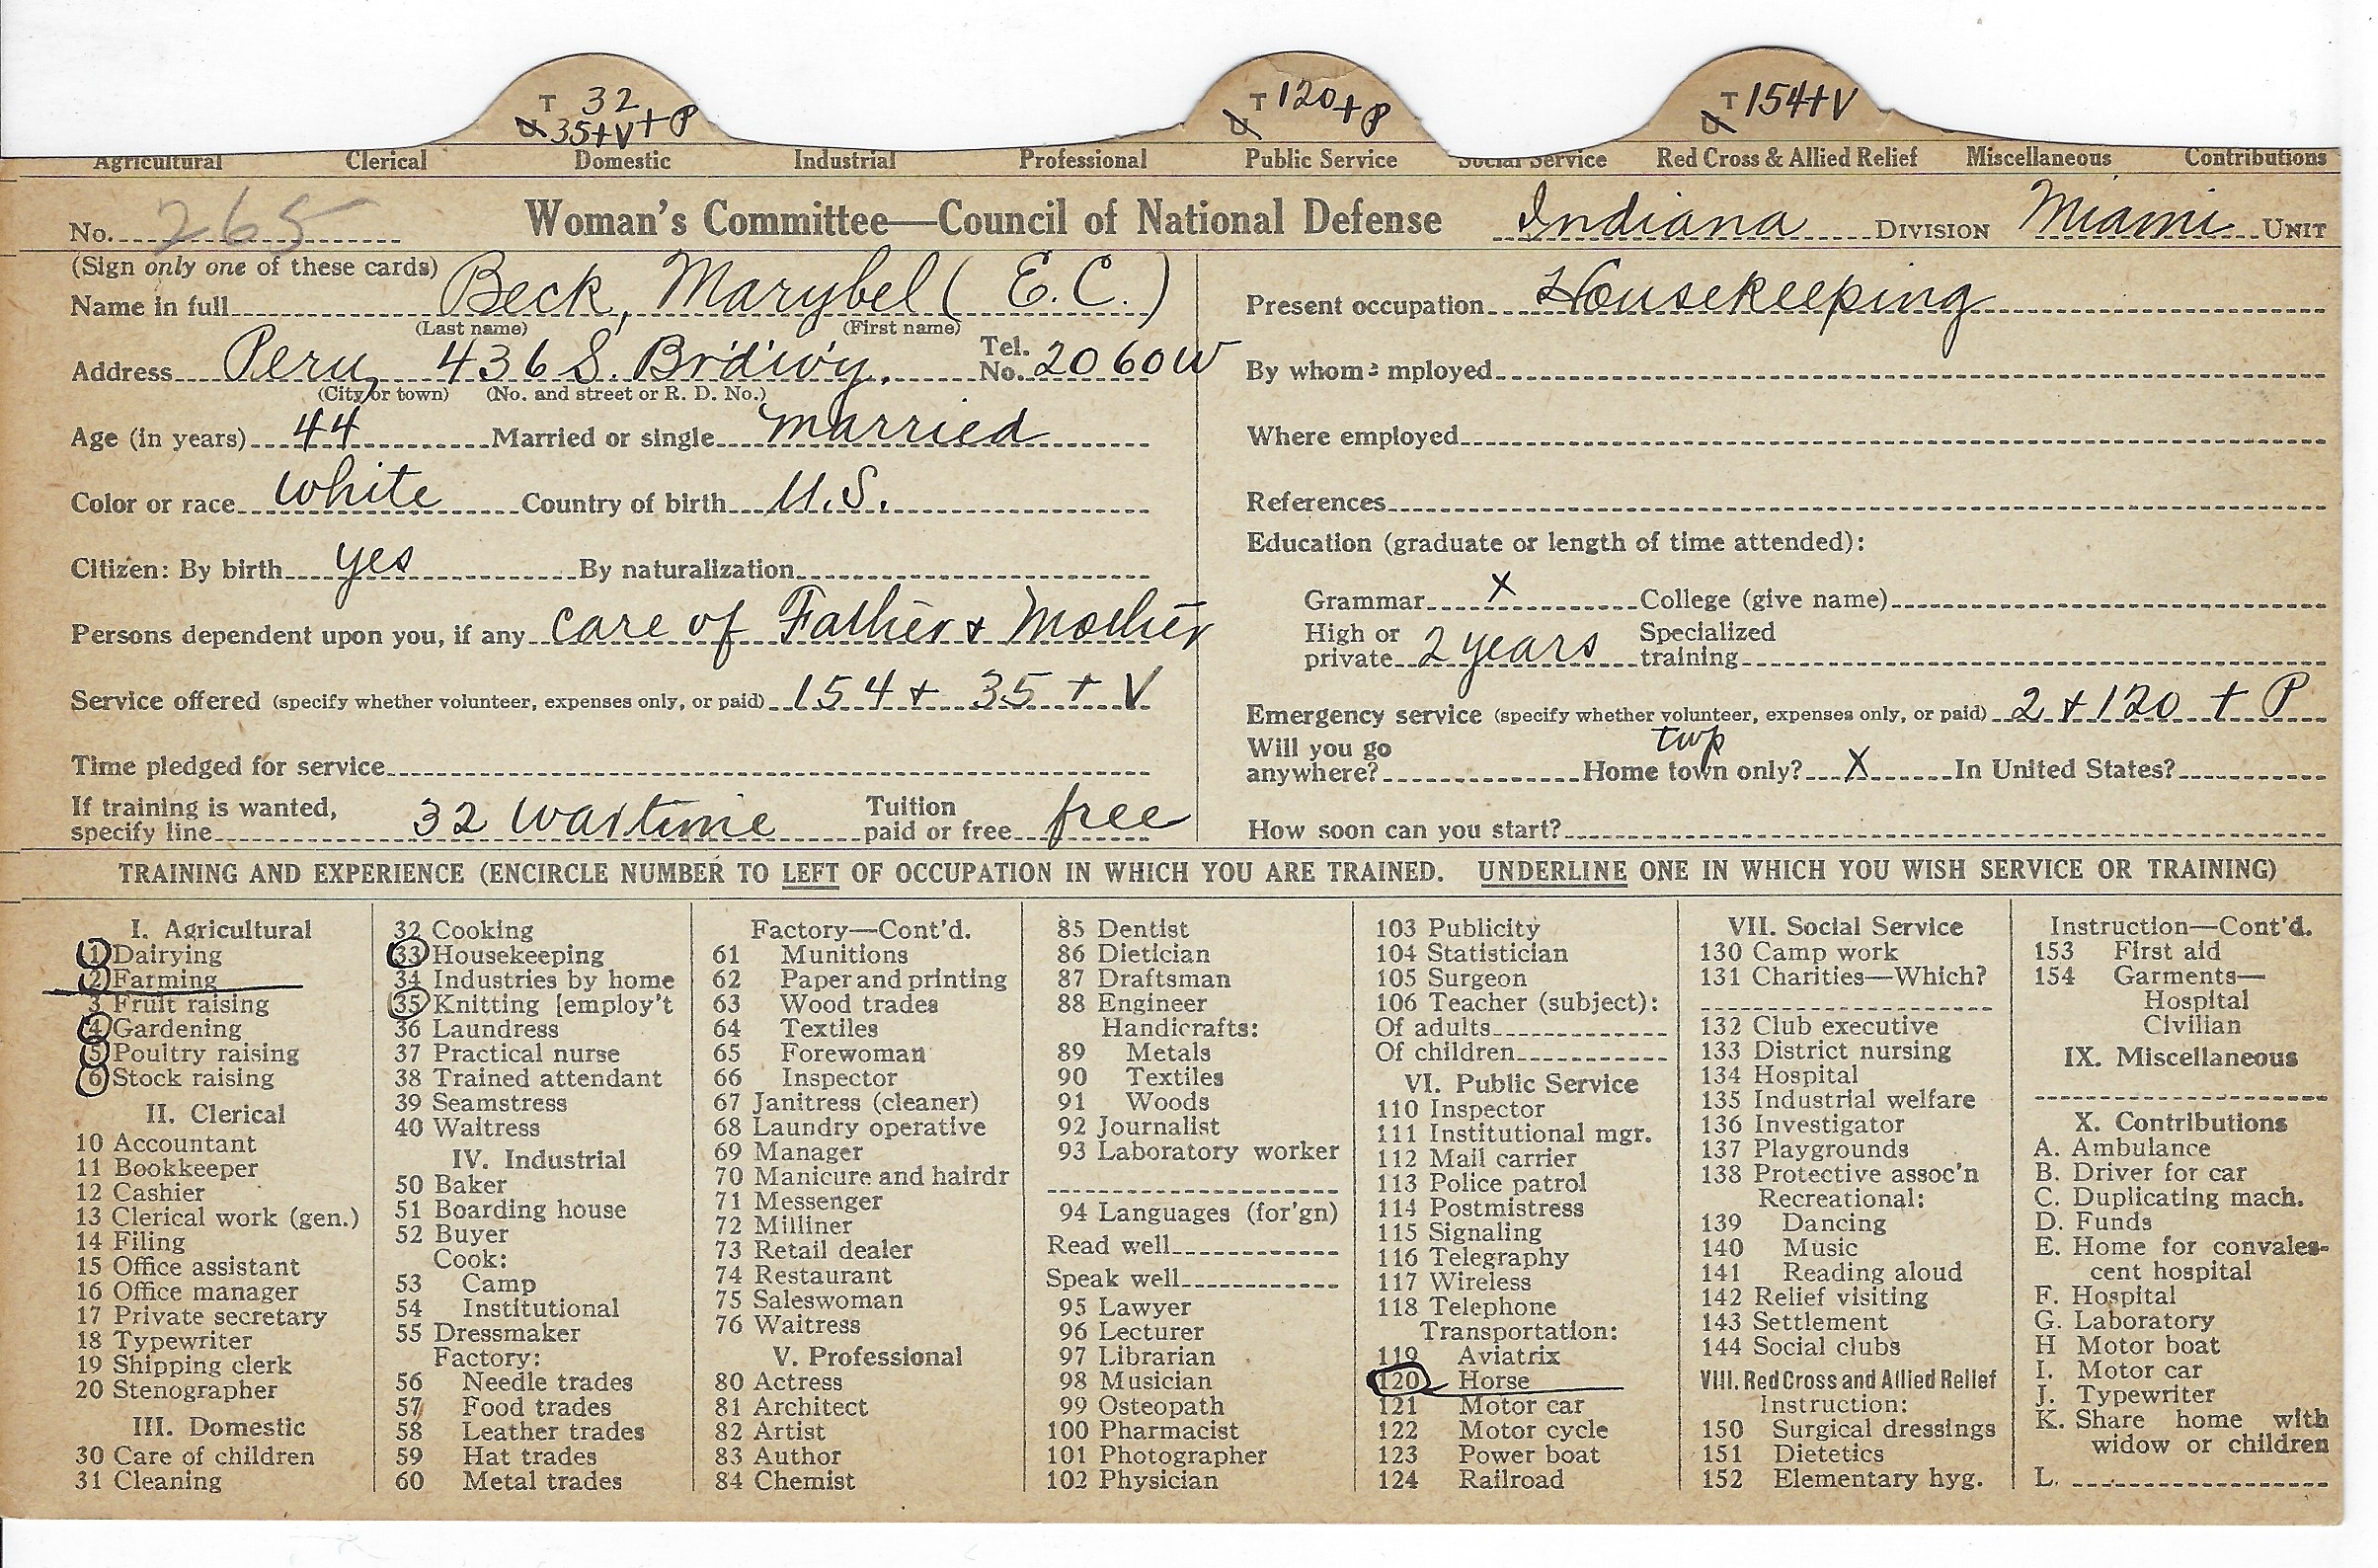 T 32
U 35+V+P
T 120+P
U
T 154+V
U
Agricultural Clerical Domestic Industrial Professional Public Service Social Service Red Cross & Allied Relief Miscellaneous Contributions
No. 265 Woman's Committee—Council of National Defense Indiana DIVISION Miami UNIT
(Sign only one of these cards)
Name in full Beck, Marybel (E.C.)
(Last name) (First name)
Address Peru, 436 S. Br'd'w'y. Tel. No. 2060W
(City or town) (No. and street or R. D. No.)
Age (in years) 44 Married or single married
Color or race white Country of birth U.S.
Citizen: By birth yes By naturalization
Persons dependent upon you, if any care of Father & Mother
Service offered (specify whether volunteer, expenses only, or paid) 154 + 35 + V
Time pledged for service
If training is wanted, specify line 32 Wartime Tuition paid or free free
Present occupation Housekeeping
By whom employed
Where employed
References
Education (graduate or length of time attended):
Grammar X College (give name)
High or private 2 years Specialized training
Emergency service (specify whether volunteer, expenses only, or paid) 2 + 120 + P
twp
Will you go anywhere? Home town only? X In United States?
How soon can you start?
TRAINING AND EXPERIENCE (ENCIRCLE NUMBER TO LEFT OF OCCUPATION IN WHICH YOU ARE TRAINED. UNDERLINE ONE IN WHICH YOU WISH SERVICE OR TRAINING)
I. Agricultural
1 Dairying
2 Farming
3 Fruit raising
4 Gardening
5 Poultry raising
6 Stock raising
II. Clerical
10 Accountant
11 Bookkeeper
12 Cashier
13 Clerical work (gen.)
14 Filing
15 Office assistant
16 Office manager
17 Private secretary
18 Typewriter
19 Shipping clerk
20 Stenographer
III. Domestic
30 Care of children
31 Cleaning
32 Cooking
33 Housekeeping
34 Industries by home
35 Knitting [employ't
36 Laundress
37 Practical nurse
38 Trained attendant
39 Seamstress
40 Waitress
IV. Industrial
50 Baker
51 Boarding house
52 Buyer
Cook:
53 Camp
54 Institutional
55 Dressmaker
Factory:
56 Needle trades
57 Food trades
58 Leather trades
59 Hat trades
60 Metal trades
Factory—Cont'd.
61 Munitions
62 Paper and printing
63 Wood trades
64 Textiles
65 Forewoman
66 Inspector
67 Janitress (cleaner)
68 Laundry operative
69 Manager
70 Manicure and hairdr
71 Messenger
72 Milliner
73 Retail dealer
74 Restaurant
75 Saleswoman
76 Waitress
V. Professional
80 Actress
81 Architect
82 Artist
83 Author
84 Chemist
85 Dentist
86 Dietician
87 Draftsman
88 Engineer
Handicrafts:
89 Metals
90 Textiles
91 Woods
92 Journalist
93 Laboratory worker
94 Languages (for'gn)
Read well
Speak well
95 Lawyer
96 Lecturer
97 Librarian
98 Musician
99 Osteopath
100 Pharmacist
101 Photographer
102 Physician
103 Publicity
104 Statistician
105 Surgeon
106 Teacher (subject):
Of adults
Of children
VI. Public Service
110 Inspector
111 Institutional mgr.
112 Mail carrier
113 Police patrol
114 Postmistress
115 Signaling
116 Telegraphy
117 Wireless
118 Telephone
Transportation:
119 Aviatrix
120 Horse
121 Motor car
122 Motor cycle
123 Power boat
124 Railroad
VII. Social Service
130 Camp work
131 Charities—Which?
132 Club executive
133 District nursing
134 Hospital
135 Industrial welfare
136 Investigator
137 Playgrounds
138 Protective assoc'n
Recreational:
139 Dancing
140 Music
141 Reading aloud
142 Relief visiting
143 Settlement
144 Social clubs
VIII. Red Cross and Allied Relief
Instruction:
150 Surgical dressings
151 Dietetics
152 Elementary hyg.
Instruction—Cont'd.
153 First aid
154 Garments—
Hospital
Civilian
IX. Miscellaneous
X. Contributions
A. Ambulance
B. Driver for car
C. Duplicating mach.
D. Funds
E. Home for convales-
cent hospital
F. Hospital
G. Laboratory
H Motor boat
I. Motor car
J. Typewriter
K. Share home with
widow or children
L.